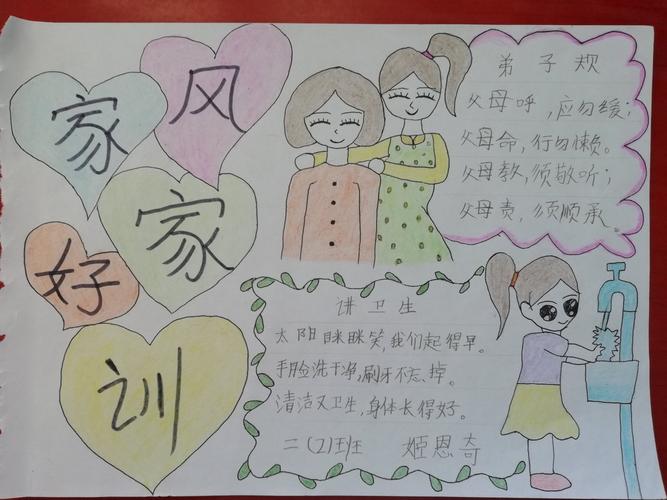 家风
好家
训
弟子规
父母呼，应勿缓；
父母命，行勿懒。
父母教，须敬听；
父母责，须顺承。
讲卫生
太阳眯眯笑，我们起得早。
手脸洗干净，刷牙不忘掉。
清洁又卫生，身体长得好。
二（2)班 姬恩奇